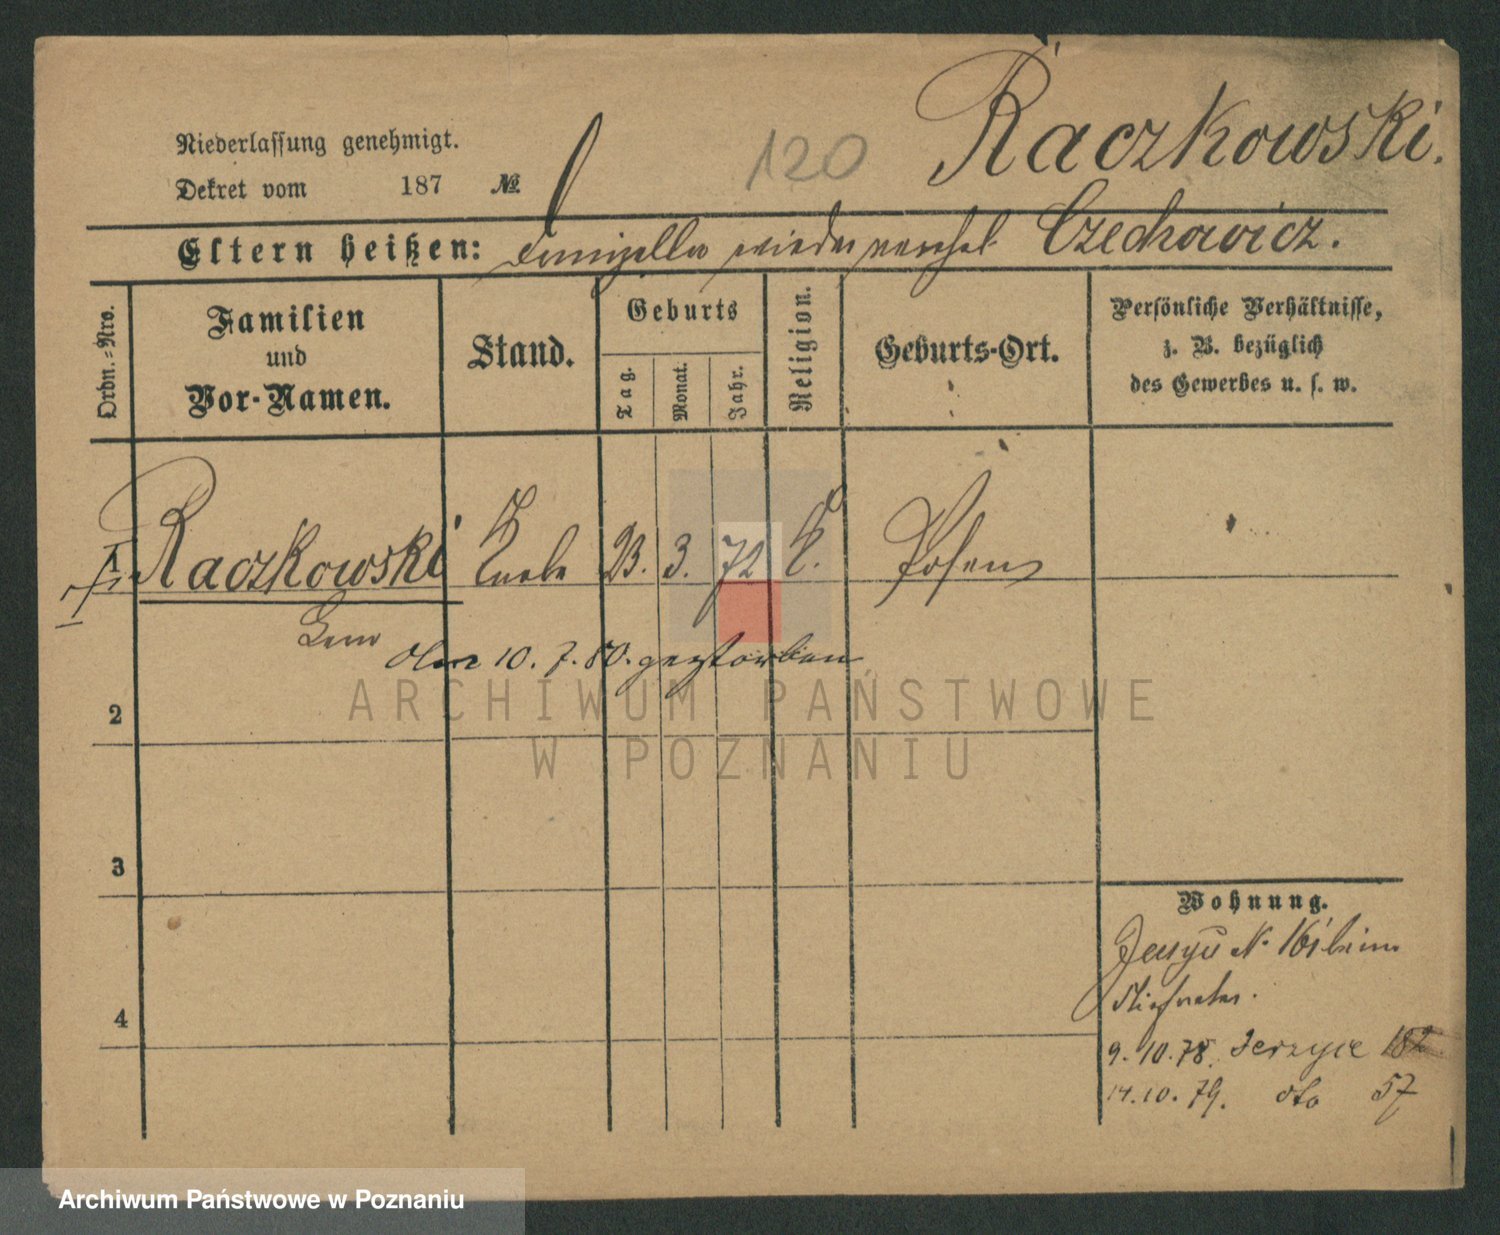 Raczkowski.
120
Niederlassung genehmigt.
Dekret vom 187 No.
Eltern heißen: wieder Czechowicz.
Ordn.-Nro.
Familien
und
Vor-Namen.
Stand.
Geburts
Tag.
Monat.
Jahr.
Religion.
Geburts-Ort.
Persönliche Verhältnisse,
z. B. bezüglich
des Gewerbes u. s. w.
1 Raczkowski Knabe 23. 3. 72 C. Posen
Leon
10. 7. 80. gestorben
2
3
4
Wohnung.
N. 16 beim
Stiefvater.
9. 10. 78. Jerzyce 182
14. 10. 79. dto 57
ARCHIWUM PAŃSTWOWE
W POZNANIU
Archiwum Państwowe w Poznaniu